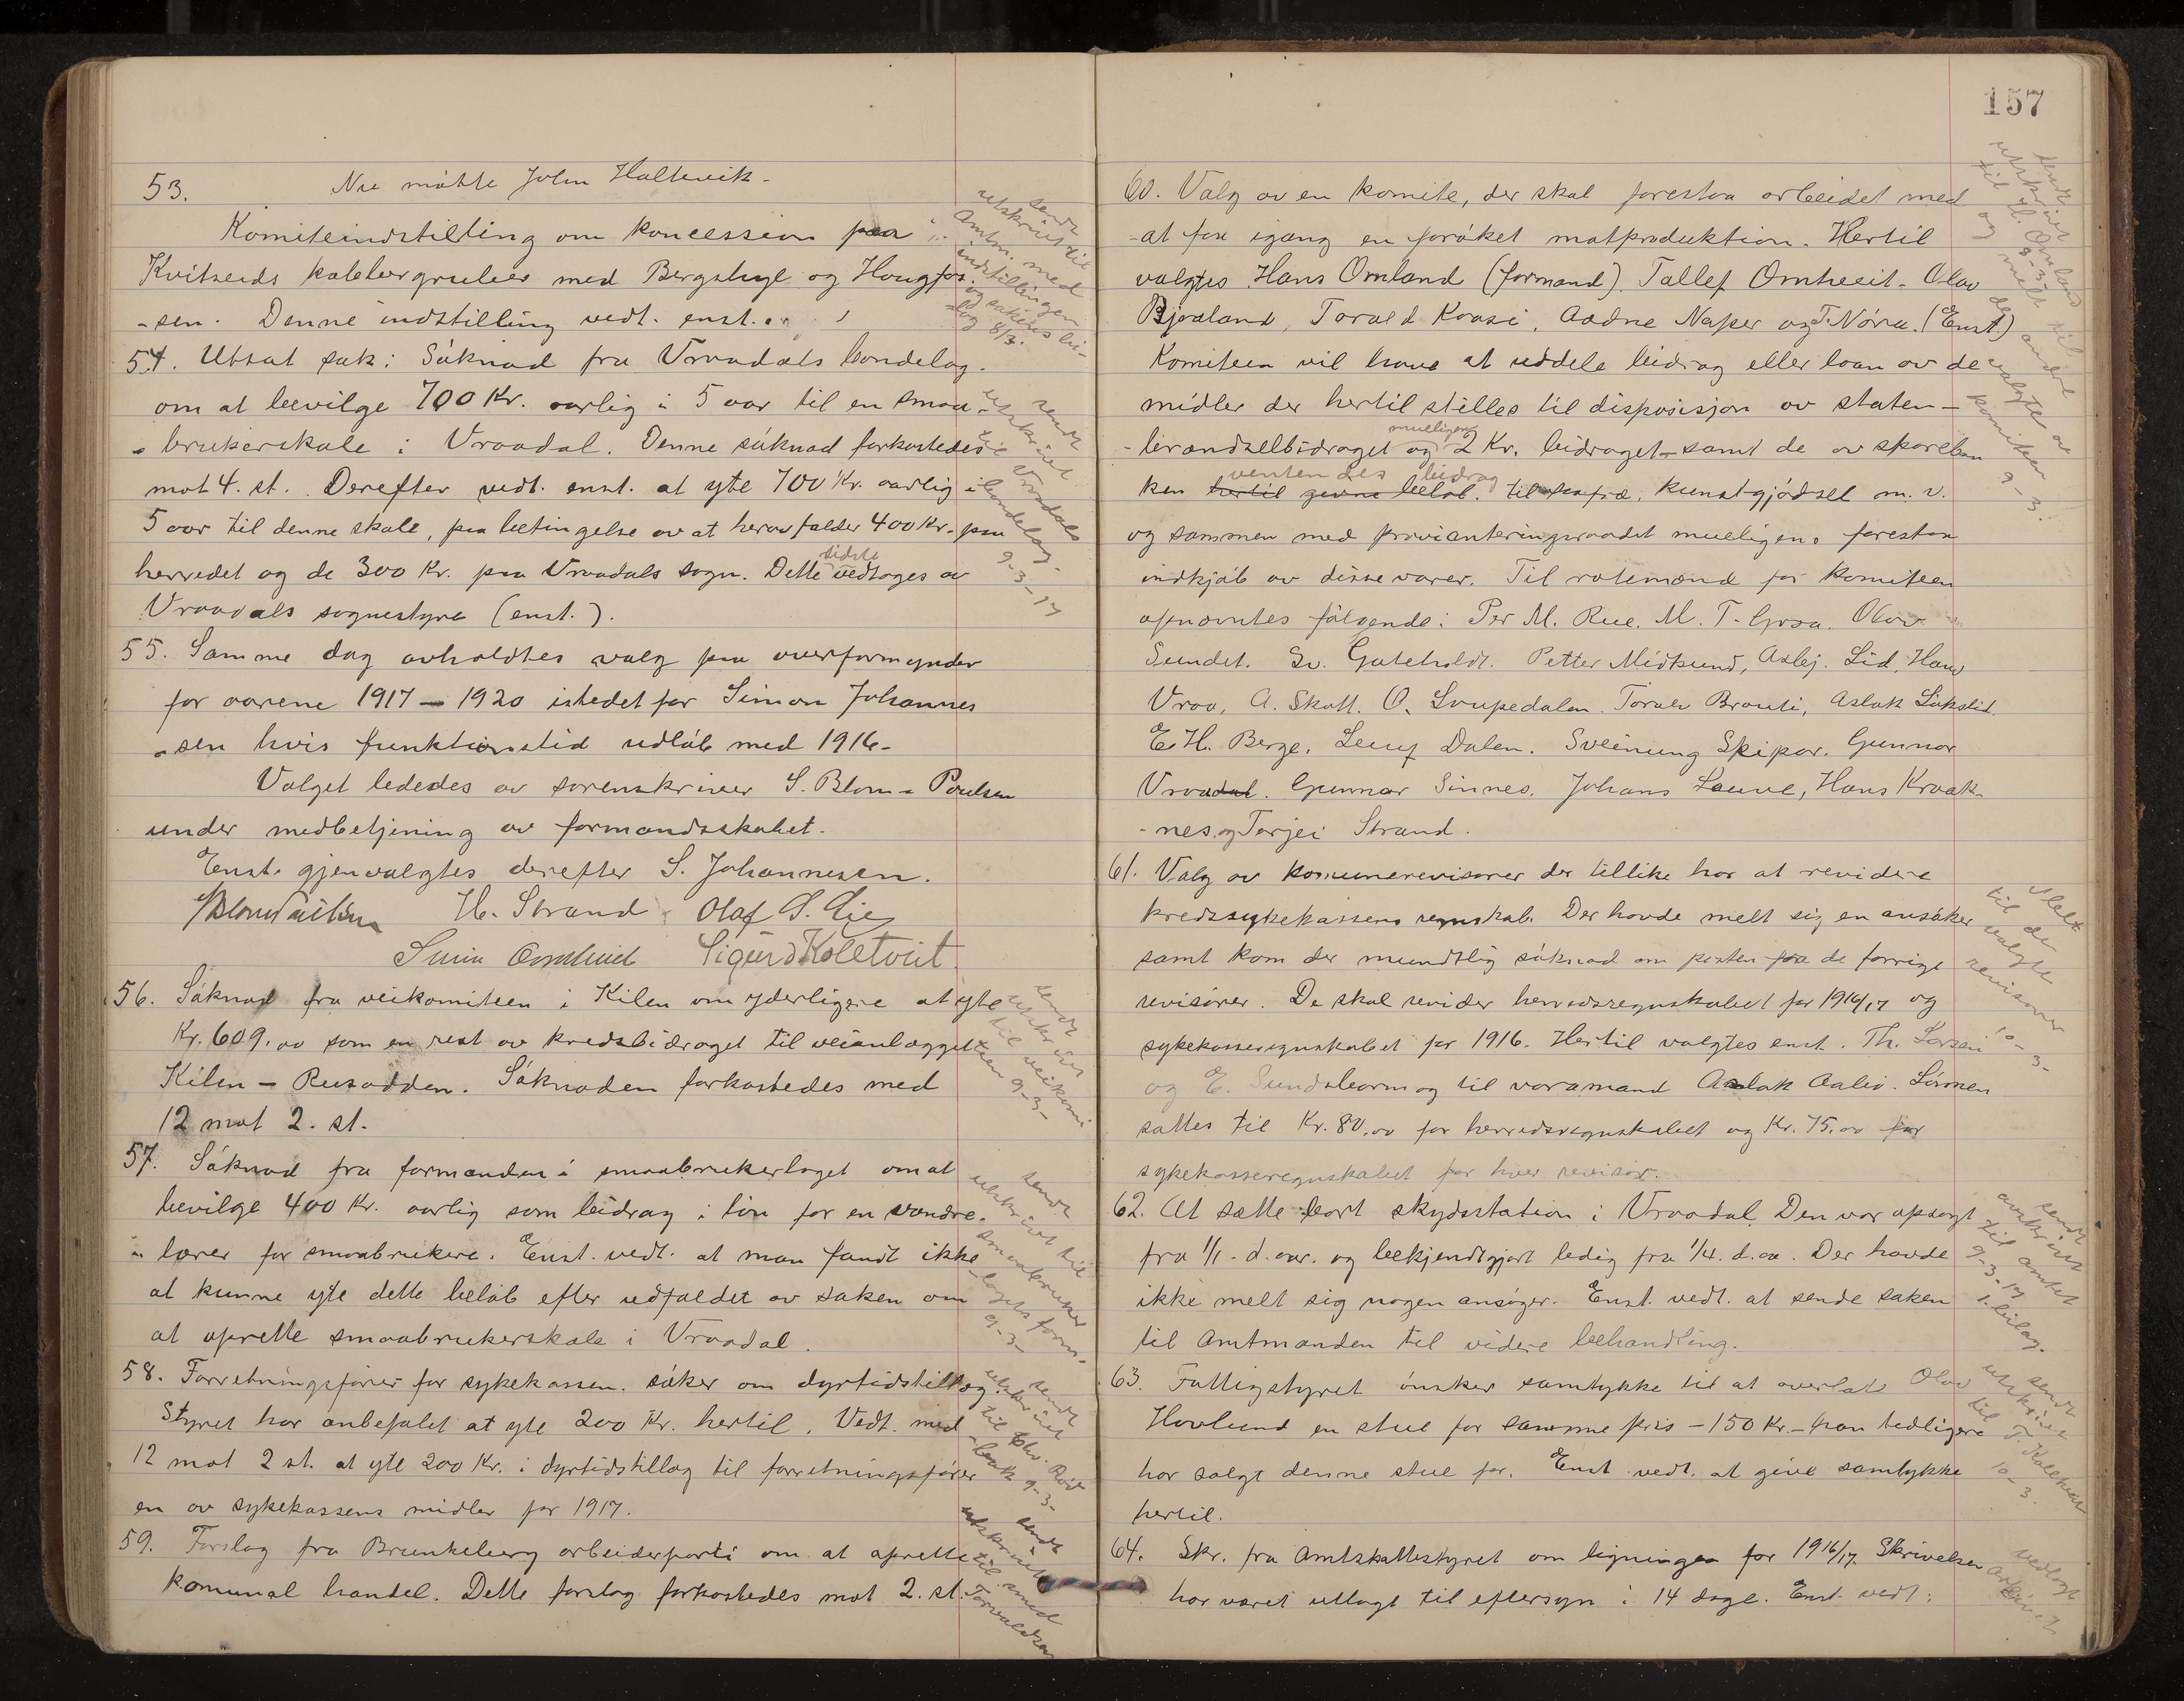 53. Nu møtte John Haltevik-
Komiteindstilling om koncession paa
Kvitseids kobbergruber med Bergsbyl og Hougfos.
-sen. Denne indstilling vedt. enst.
sendt utskrivt til Amtm. med indstillingen og sakens bi-lag 8/3.
54. Utsat sak: Søknad fra Vraadals bondelag.
om at bevilge 700 Kr. aarlig i 5 aar til en smaa-
-brukerskole i Vraadal. Denne søknad forkastedes
mot 4. st. Derefter vedt. enst. at yte 700 Kr. aarlig i
5 aar til denne skole, paa betingelse av at herav falder 400 Kr. paa
herredet og de 300 Kr. paa Vraadals sogn. Dette sidste vedtoges av
Vraadals sognestyre (enst.).
sendt utskrivt til Vraadals bondelag. 9-3-17
55. Samme dag avholdtes valg paa overformynder
for aarene 1917 - 1920 istedet for Simon Johannes
-sen hvis funktionstid utløb med 1916-
Valget lededes av sorenskriver S. Blom-Poulsen
under medbetjening av formandsskabet.
Enst. gjenvalgtes derefter S. Johannesen.
H. Strand Olaf S. Lie
Sigurd Koltveit
56. Søknad fra veikomiteen i Kilen om yderligere at yte
Kr. 609.00 som en rest av kredsbidraget til veianlægget
Kilen - Rusodden. Søknaden forkastedes med
12 mot 2. st.
sendt utskrivt til veikomi-teen 9-3-
57. Søknad fra formanden i smaabrukerlaget om at
bevilge 400 Kr. aarlig som bidrag i løn for en vandre-
lærer for smaabrukere. Enst. vedt. at man fandt ikke
at kunne yte dette beløb efter udfaldet av saken om
at oprette smaabrukerskole i Vraadal.
sendt utskrivt til smaabruker-lagets form. 9-3-
58. Forretningsfører for sykekassen. søker om dyrtidstillæg
Styret har anbefalet at yte 200 Kr. hertil. Vedt. med
12 mot 2 st. at yte 200 Kr. i dyrtidstillæg til forretningsfører
en av sykekassens midler for 1917.
sendt utskrivt til 9-3-
59. Forslag fra Brunkeberg arbeiderparti om at oprette
komunal handel. Dette forslag forkastedes mot 2. st.
sendt utskrivt til smed Torvaldsen
157
60. Valg av en komite, der skal forestaa arbeidet med
-at faa igang en forøket matproduktion. Hertil
valgtes Hans Omland (formand). Tallef Omtveit. Olav
Bjaaland, Torald Kaasi, Aadne Naper og T. Nøra. (Enst)
Komiteen vil have at uddele bidrag eller laan av de
midler der hertil stilles til disposisjon av staten -
-brændselbidraget og muligens 2 Kr. bidraget - samt de av spareban
ken hertil givne beløb. ventendes bidrag til saafrø, kunstgjødsel m. v.
og sammen med provianteringsraadet muligens forestaa
indkjøb av disse varer. Til rotemænd for komiteen
opnævntes følgende: Per M. Rue. M. T. Groa. Olav
Sundet. Sv. Gateholdt. Petter Midtsund, Aslej. Lid, Hans
Vraa, A. Skott. O. Loupedalen. Torulv Brauti, Aslak Løkslid.
E. H. Berge. Leuf Dalen. Sveinung Skipar. Gunnar
Vraadal. Gunnar Sinnes. Johans Lauve, Hans Kraak-
-nes, og Terjei Strand.
sendt utskrivt til H. Omland 9-3- og melt til de andre valgte av komiteen 9-3.
61. Valg av komunerevisorer der tillike har at revidere
kredssykekassens regnskab. Der havde melt sig en ansøker
samt kom der mundtlig søknad om posten fra de forrige
revisorer. De skal revider herredsregnskabet for 1916/17 og
sykekasseregnskabet for 1916. Hertil valgtes enst. Th. Larsen
og E. Sundsbarm og til varamand Aslak Aabø. Lønnen
sattes til Kr. 80.00 for herredsregnskabet og Kr. 75.00 for
sykekasseregnskabet for hver revisor.
Melt til de valgte revisorer 10-3-
62. At sætte bort skydsstation i Vraadal. Den var opsagt
fra 1/1 - d. aar. og bekjendtgjort ledig fra 1/4. d. aa. Der havde
ikke melt sig nogen ansøger. Enst. vedt. at sende saken
til Amtmanden til videre behandling.
sendt avskrivt til amtet 9-3-17 1. bilag.
63. Fattigstyret ønsker samtykke til at overlate Olav
Hovlund en stue for samme pris - 150 Kr. - han tidligere
har solgt denne stue for. Enst vedt. at give samtykke
hertil.
sendt utskrivt til T. Kolltveit 10-3.
64. Skr. fra Amtskattestyret om ligningen for 1916/17. Skrivelsen
har været utlagt til eftersyn i 14 dage. Enst. vedt:
vedlagt arkivet